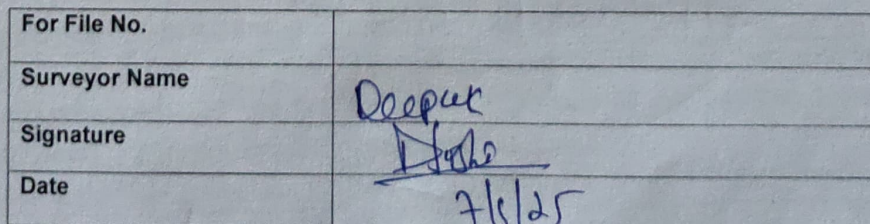 For File No.
Surveyor Name Deepak
Signature
Date